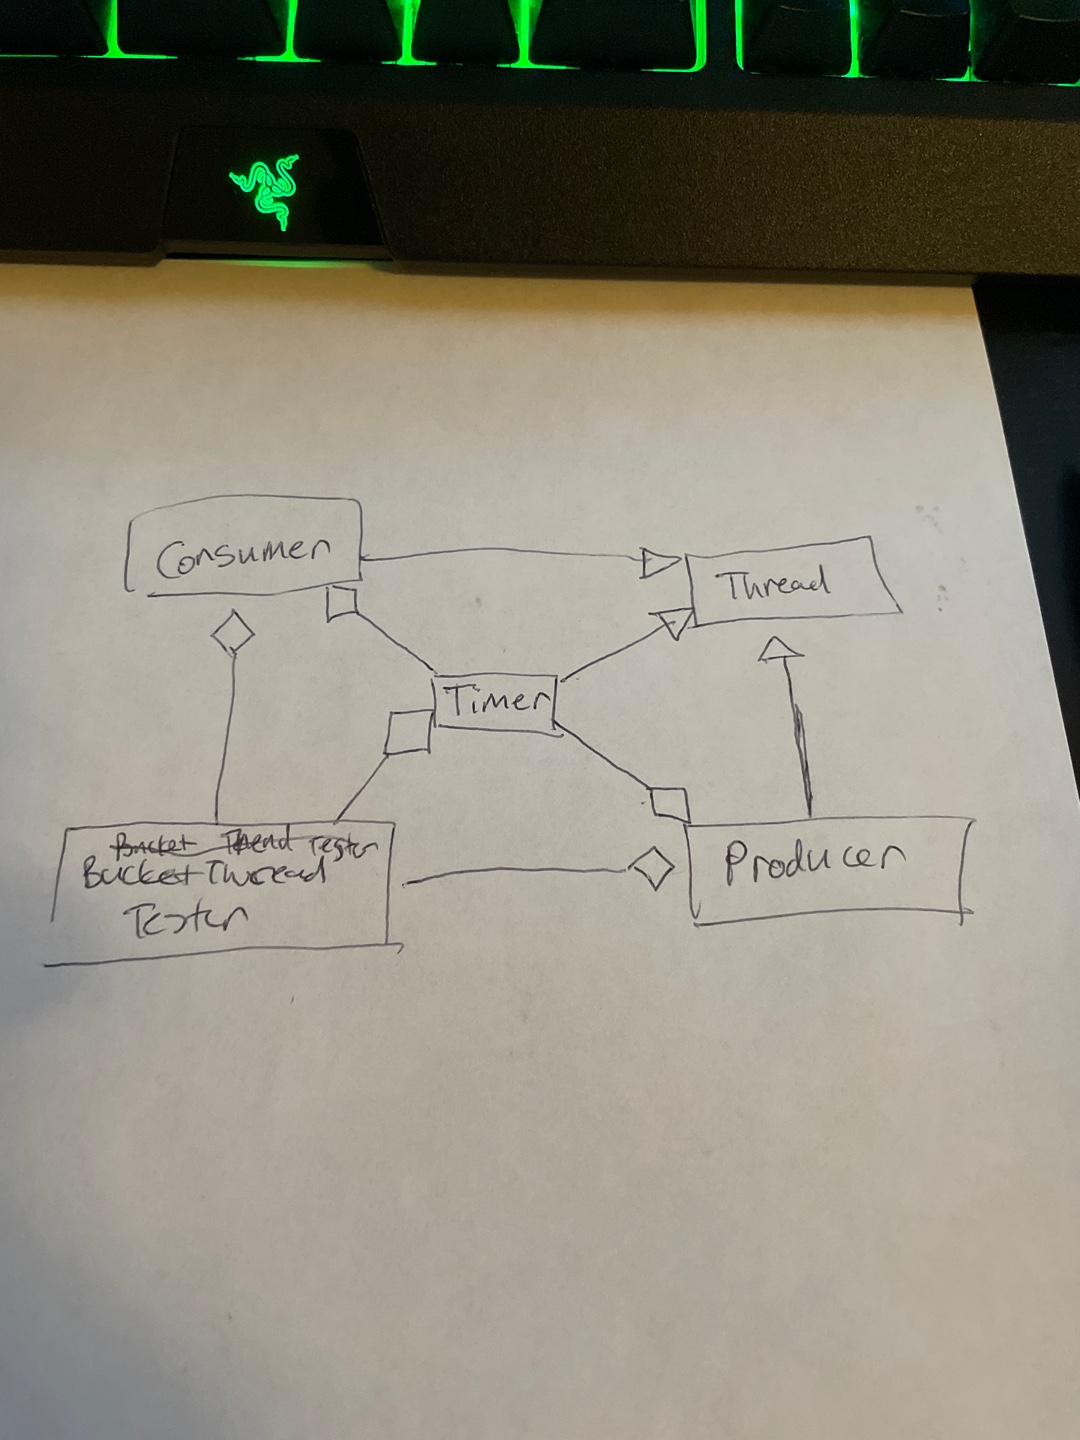 Consumer
Thread
Timer
Bucket Thread Tester
Bucket Thread
Tester
Producer